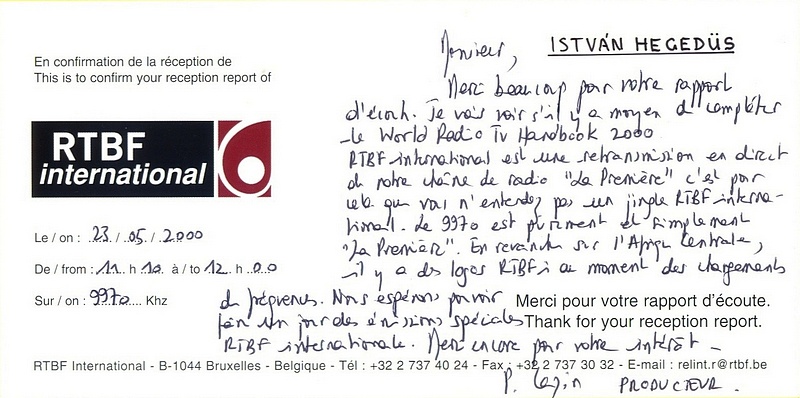 En confirmation de la réception de
This is to confirm your reception report of
RTBF
international
Le / on : 23 / 05 / 2000
De / from : 11 h 10 à / to 12 h 00
Sur / on : 9970 Khz
ISTVÁN HEGEDÜS
Monsieur,
Merci beaucoup pour votre rapport
d'écoute. Je vais voir s'il y a moyen de compléter
le World Radio Tv Handbook 2000
RTBF international est une retransmission en direct
de notre chaîne de radio "La Première" c'est pour
cela que vous n'entendez pas un jingle RTBF interna-
tional. Le 9970 est purement et simplement
"La Première". En revanche sur l'Afrique Centrale,
il y a des logos RTBFi au moment des changements
de fréquences. Nous espérons pouvoir
faire un jour des émissions spéciales
RTBF internationale. Merci encore pour votre intérêt -
Merci pour votre rapport d'écoute.
Thank for your reception report.
RTBF International - B-1044 Bruxelles - Belgique - Tél : +32 2 737 40 24 - Fax : +32 2 737 30 32 - E-mail : relint.r@rtbf.be
P. PRODUCTEUR.